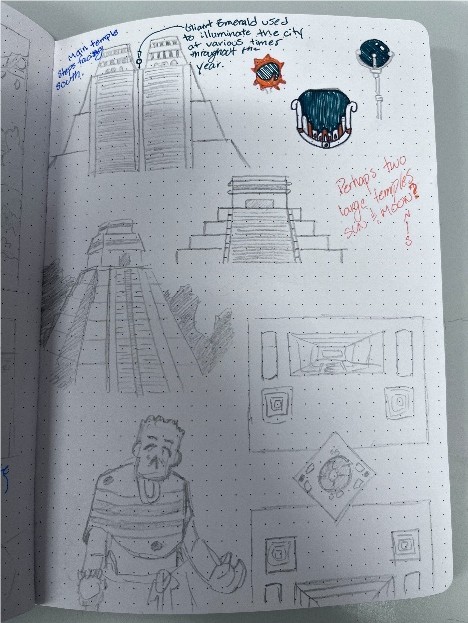 Main temple
steps facing
south.
Giant Emerald used
to illuminate the city
at various times
throughout the
year.
Perhaps two
large temples
sun & Moon?
N
S